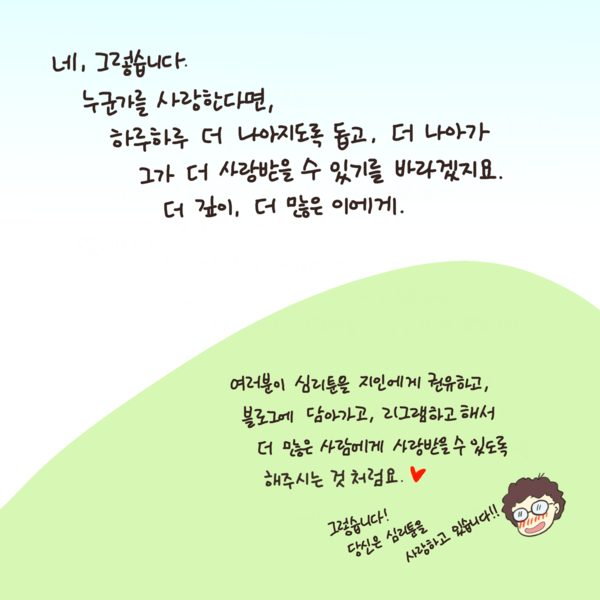 네, 그렇습니다.
누군가를 사랑한다면,
하루하루 더 나아지도록 돕고, 더 나아가
그가 더 사랑받을 수 있기를 바라겠지요.
더 깊이, 더 많은 이에게.
여러분이 심리툰을 지인에게 권유하고,
블로그에 담아가고, 리그램하고 해서
더 많은 사람에게 사랑받을 수 있도록
해주시는 것 처럼요.
그렇습니다!
당신은 심리툰을
사랑하고 있습니다!!